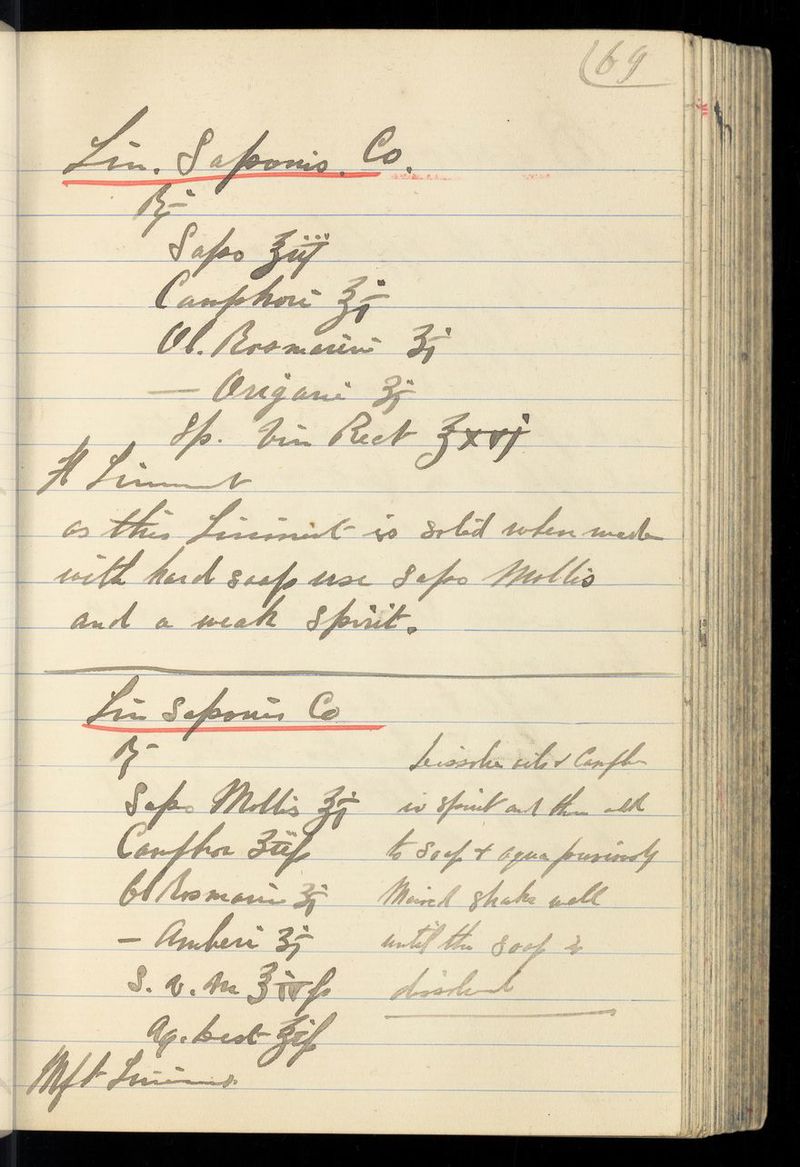 69
Lin. Saponis. Co.
℞
Sapo ℥iij
Camphori ℥j
Ol. Rosmarini ʒj
— Origani ʒj
Sp. Vin Rect ℥xvj
ft Liniment
as this Liniment is solid when made
with hard soap use Sapo Mollis
and a weak Spirit.
Lin Saponis Co
℞
Sapo Mollis ℥j
Camphor
Ol Rosmarini ʒj
— Amberi ʒj
S. V. M
Aq. Dest
Mft Liniment
Dissolve oils & Camphor
in spirit and then add
to Soap & aqua previously
Mixed shake well
until the soap is
dissolved